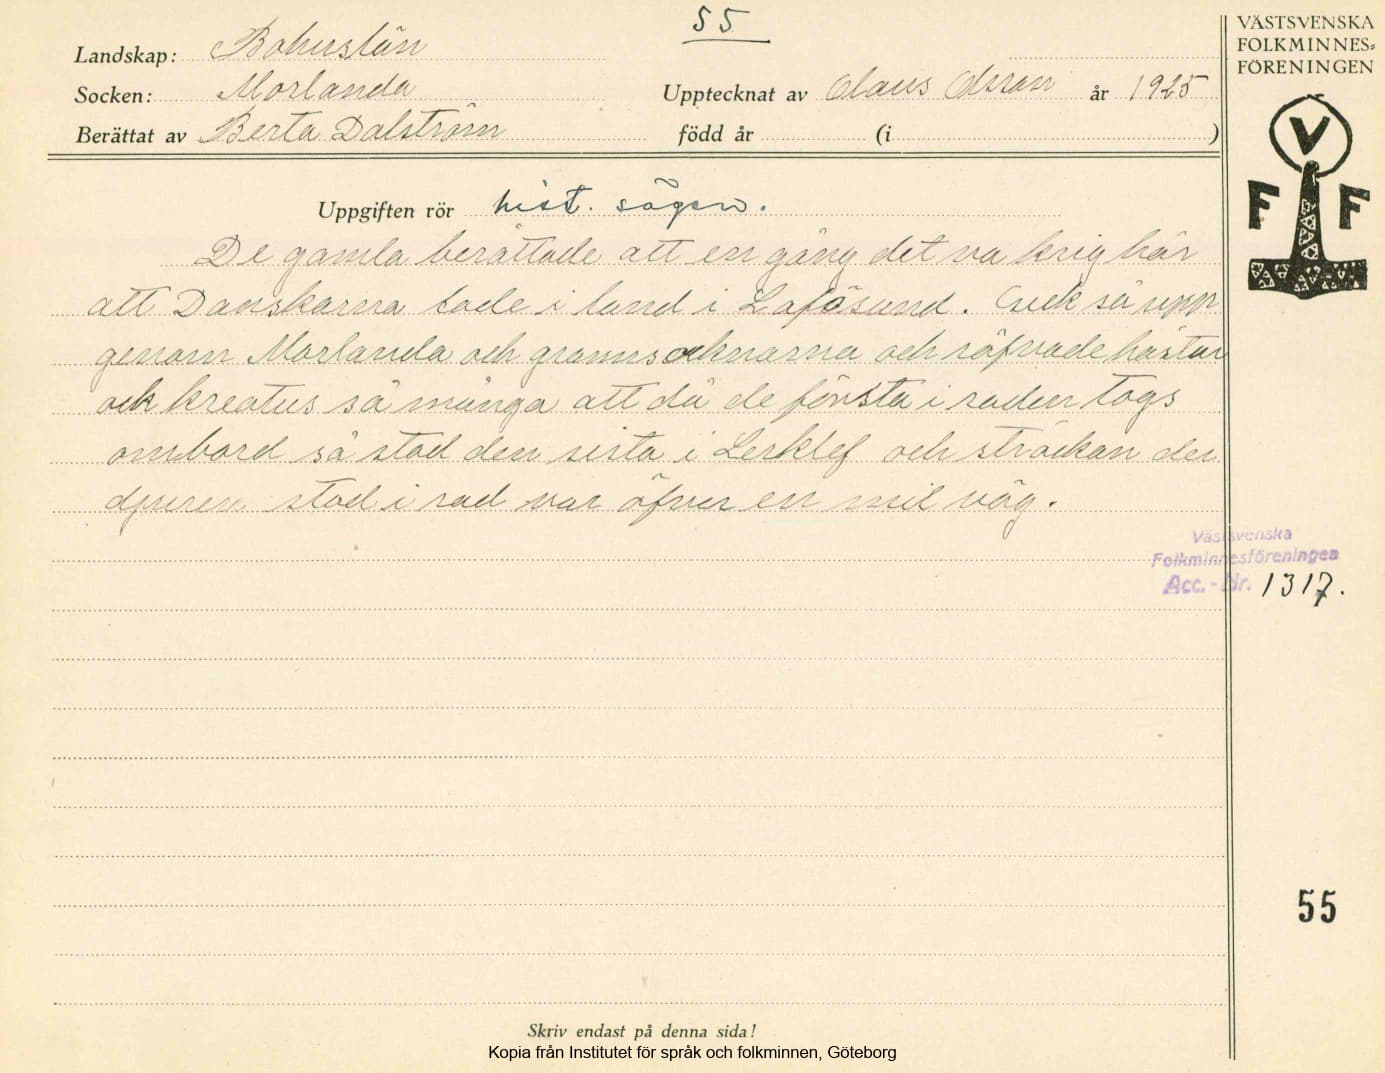 55
VÄSTSVENSKA
FOLKMINNES=
FÖRENINGEN
Landskap: Bohuslän
Socken: Morlanda
Upptecknat av Claus Olsson år 1925
Berättat av Berta Dalström
född år (i )
V
F F
Uppgiften rör hist. sägen.
De gamla berättade att en gång det va krig här
att Danskarna lade i land i Lafösund. Gick så upp
genom Morlanda och grannsocknarna och röfvade hästar
och kreatus så många att då de första i raden togs
ombord så stod den sista i Lerklef och sträckan der
djuren stod i rad var öfver en mil väg.
Västsvenska
Folkminnesföreningen
Acc.-Nr. 1317.
55
Skriv endast på denna sida!
Kopia från Institutet för språk och folkminnen, Göteborg